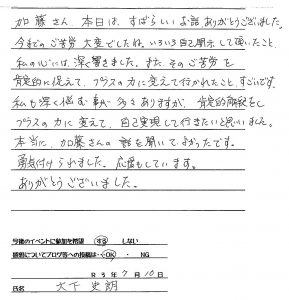 加藤さん 本日は、すばらしいお話ありがとうございました。
今までのご苦労 大変でしたね。いろいろ自己開示して頂いたこと、
私の心には、深く響きました。また、そのご苦労を
肯定的に捉えて、プラスの力に変えて行かれたこと、すごいです。
私も深く悩む事が多々ありますが、肯定的解釈をし
プラスの力に変えて、自己実現して行きたいと思いました。
本当に、加藤さんの話を聞いてよかったです。
勇気付けられました。応援もしています。
ありがとうございました。
今後のイベントに参加を希望 する しない
感想についてブログ等への投稿は OK ・ NG
R3年7月10日
氏名 大下 史朗